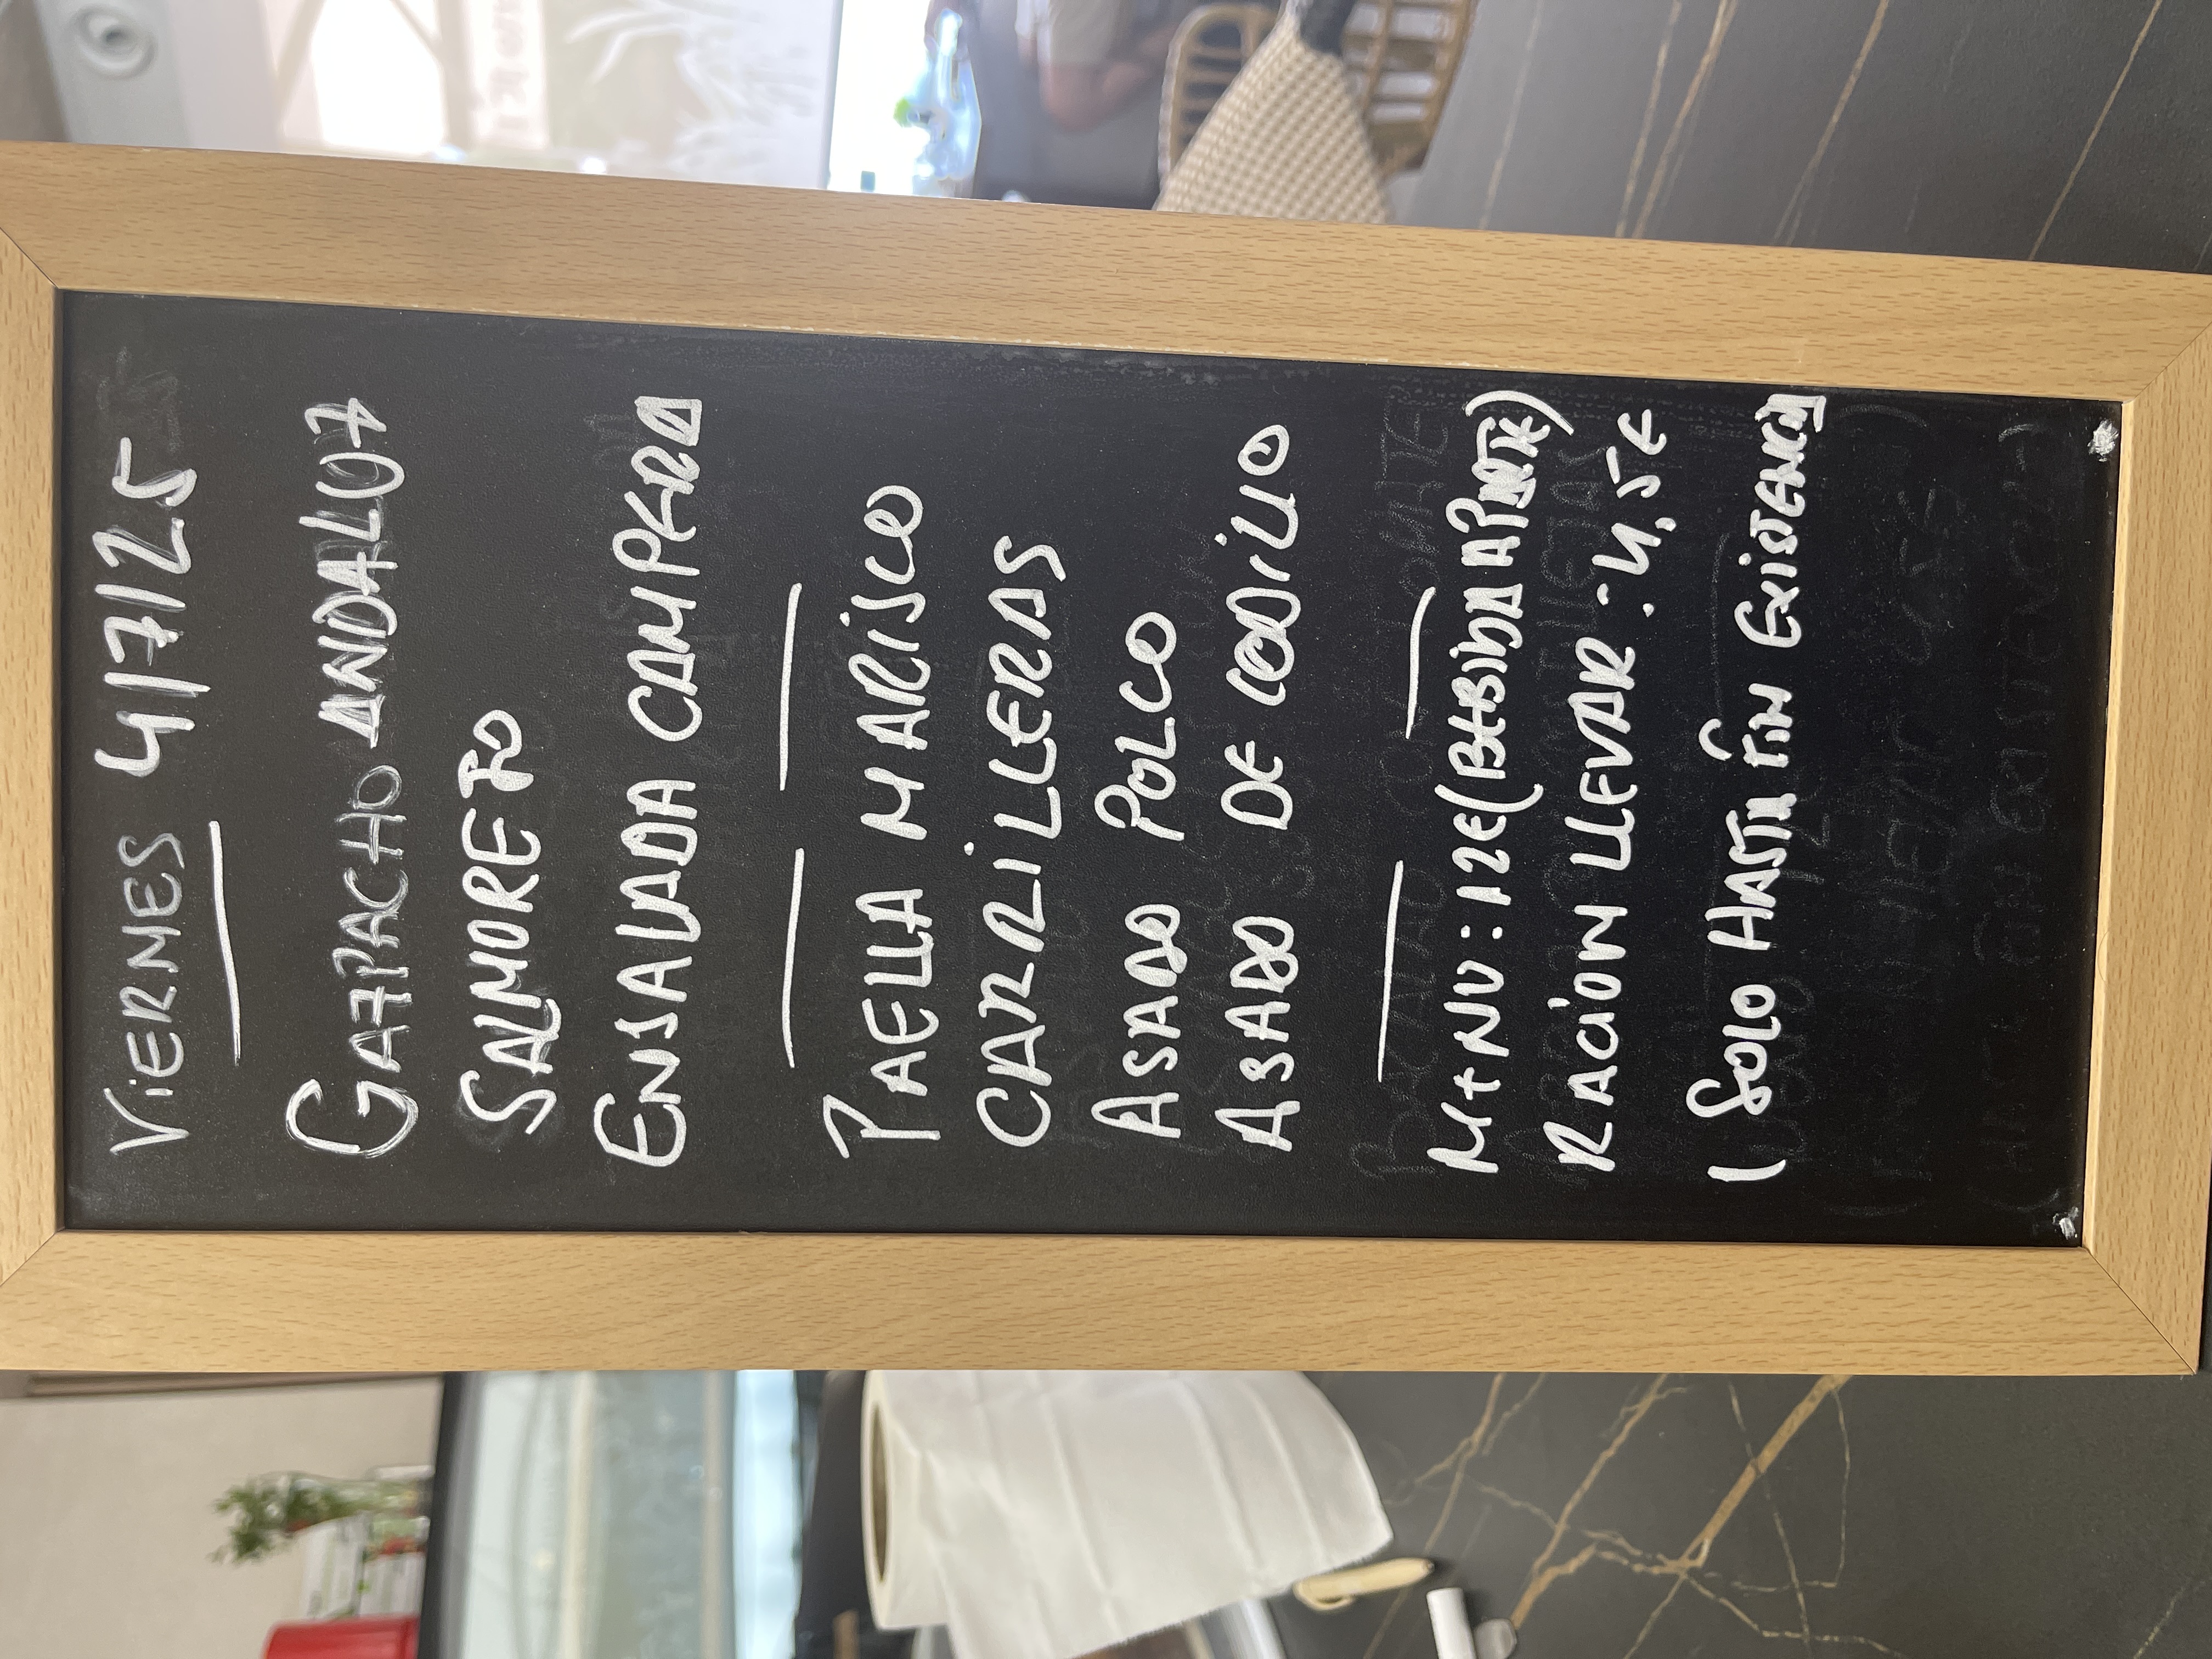 VIERNES 4/7/25
GAZPACHO ANDALUZ
SALMOREJO
ENSALADA CAMPERA
PAELLA MARISCO
CARRILLERAS
ASADO POLCO
ASADO DE CODILLO
MENU: 12€ (BEBIDA APARTE)
RACION LLEVAR: 4,5€
(SOLO HASTA FIN EXISTENCIA)